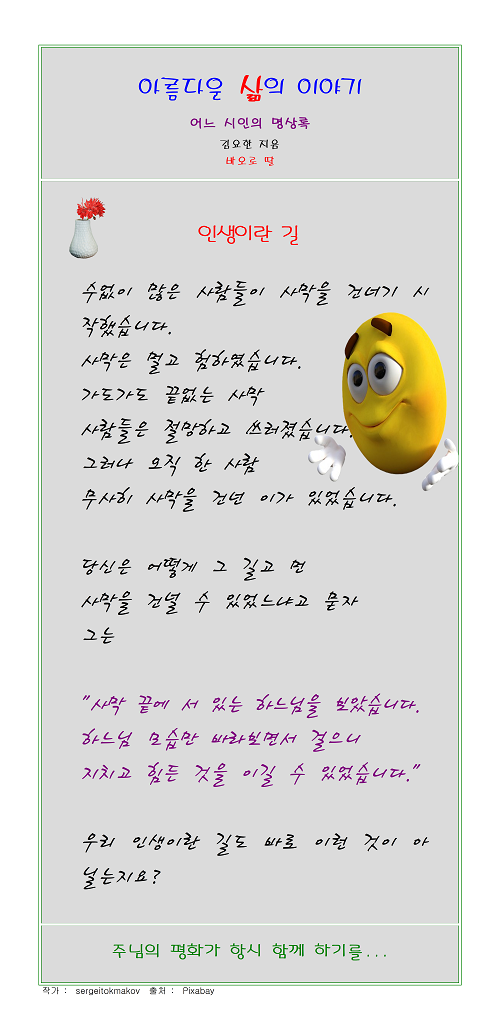 아름다운 삶의 이야기
어느 시인의 명상록
김요한 지음
바오로 딸
인생이란 길
수없이 많은 사람들이 사막을 건너기 시
작했습니다.
사막은 멀고 험하였습니다.
가도가도 끝없는 사막
사람들은 절망하고 쓰러졌습니다.
그러나 오직 한 사람
무사히 사막을 건넌 이가 있었습니다.
당신은 어떻게 그 길고 먼
사막을 건널 수 있었느냐고 묻자
그는
"사막 끝에 서 있는 하느님을 보았습니다.
하느님 모습만 바라보면서 걸으니
지치고 힘든 것을 이길 수 있었습니다."
우리 인생이란 길도 바로 이런 것이 아
닐는지요?
주님의 평화가 항시 함께 하기를...
작가 : sergeitokmakov 출처 : Pixabay